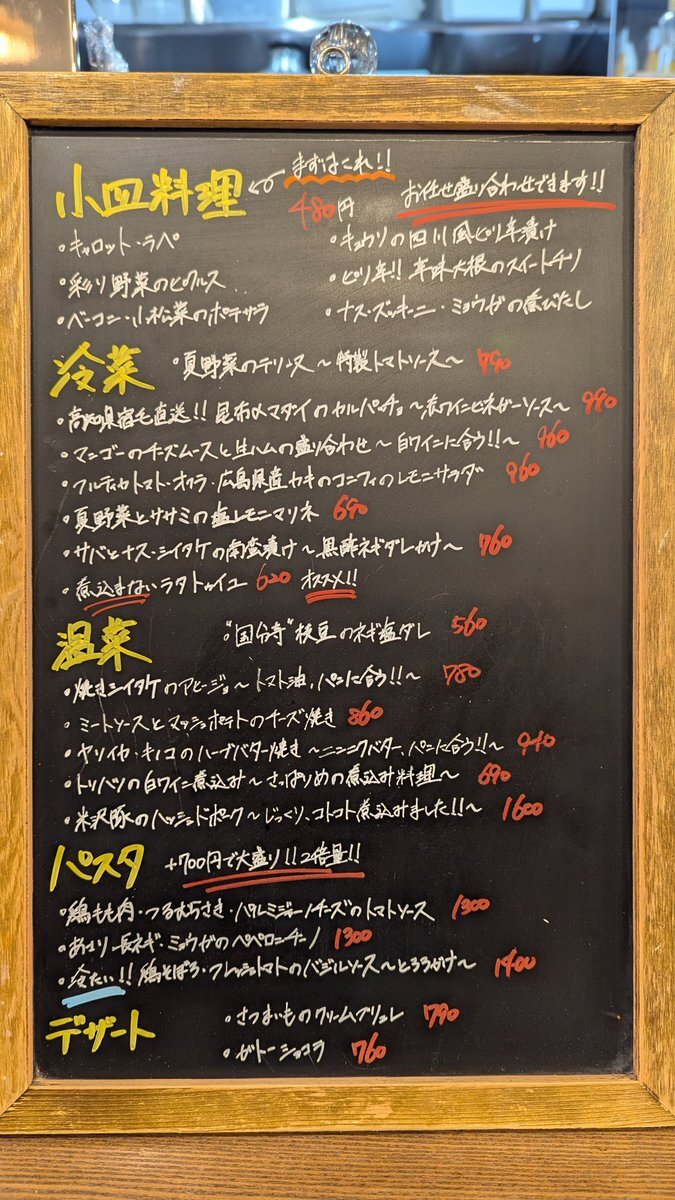 小皿料理 まずはこれ!! 480円 お任せ盛り合わせできます!!
・キャロット・ラペ ・キュウリの四川風ピリ辛漬け
・彩り野菜のピクルス ・ピリ辛!! 辛味大根のスイートチリ
・ベーコン・小松菜のポテサラ ・ナス・ズッキーニ・ミョウガの煮びたし
冷菜 ・夏野菜のテリーヌ〜特製トマトソース〜 790
・高知県宿毛直送!! 昆布〆マダイのカルパッチョ〜赤ワインビネガーソース〜 990
・マンゴーのチーズムースと生ハムの盛り合わせ〜白ワインに合う!!〜 960
・フルティカトマト・オクラ・広島県産カキのコンフィのレモンサラダ 960
・夏野菜とササミの塩レモンマリネ 690
・サバとナス・シイタケの南蛮漬け〜黒酢ネギダレがけ〜 760
・煮込まないラタトゥイユ 620 オススメ!!
温菜 "国分寺"枝豆のネギ塩ダレ 560
・焼きシイタケのアヒージョ〜トマト油、パンに合う!!〜 780
・ミートソースとマッシュポテトのチーズ焼き 860
・ヤリイカ・キノコのハーブバター焼き〜ニンニクバター、パンに合う!!〜 940
・トリハツの白ワイン煮込み〜さっぱりめの煮込み料理〜 690
・米沢豚のハッシュドポーク〜じっくり、コトコト煮込みました!!〜 1600
パスタ +700円で大盛り!! 2倍量!!
・鶏もも肉・つるむらさき・パルミジャーノチーズのトマトソース 1300
・あさり 長ネギ・ミョウガのペペロンチーノ 1300
・冷たい!! 鶏そぼろ・フレッシュトマトのバジルソース〜とろろがけ〜 1400
デザート ・さつまいものクリームブリュレ 790
・ガトーショコラ 760